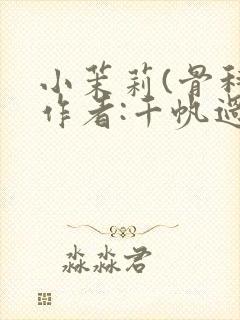 小茉莉(骨科
作者:千帆过
淼淼君